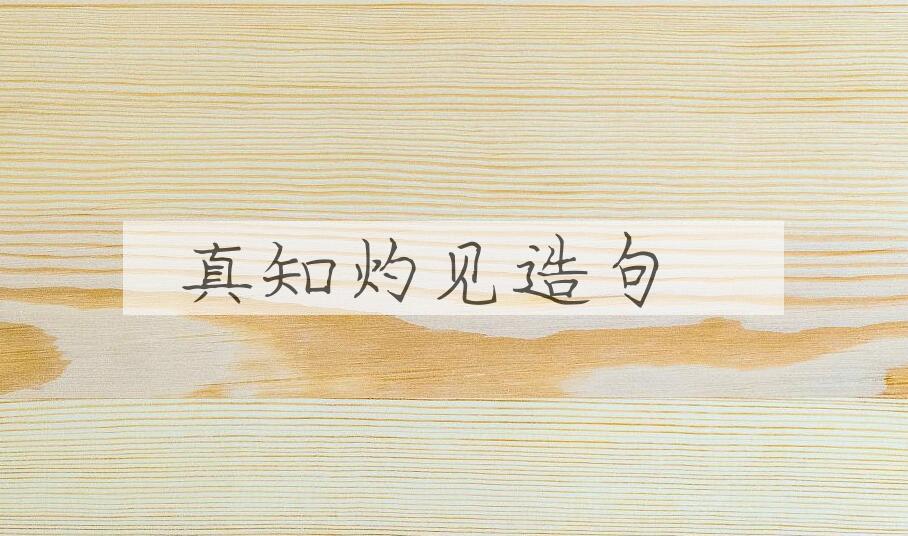 真知灼见造句